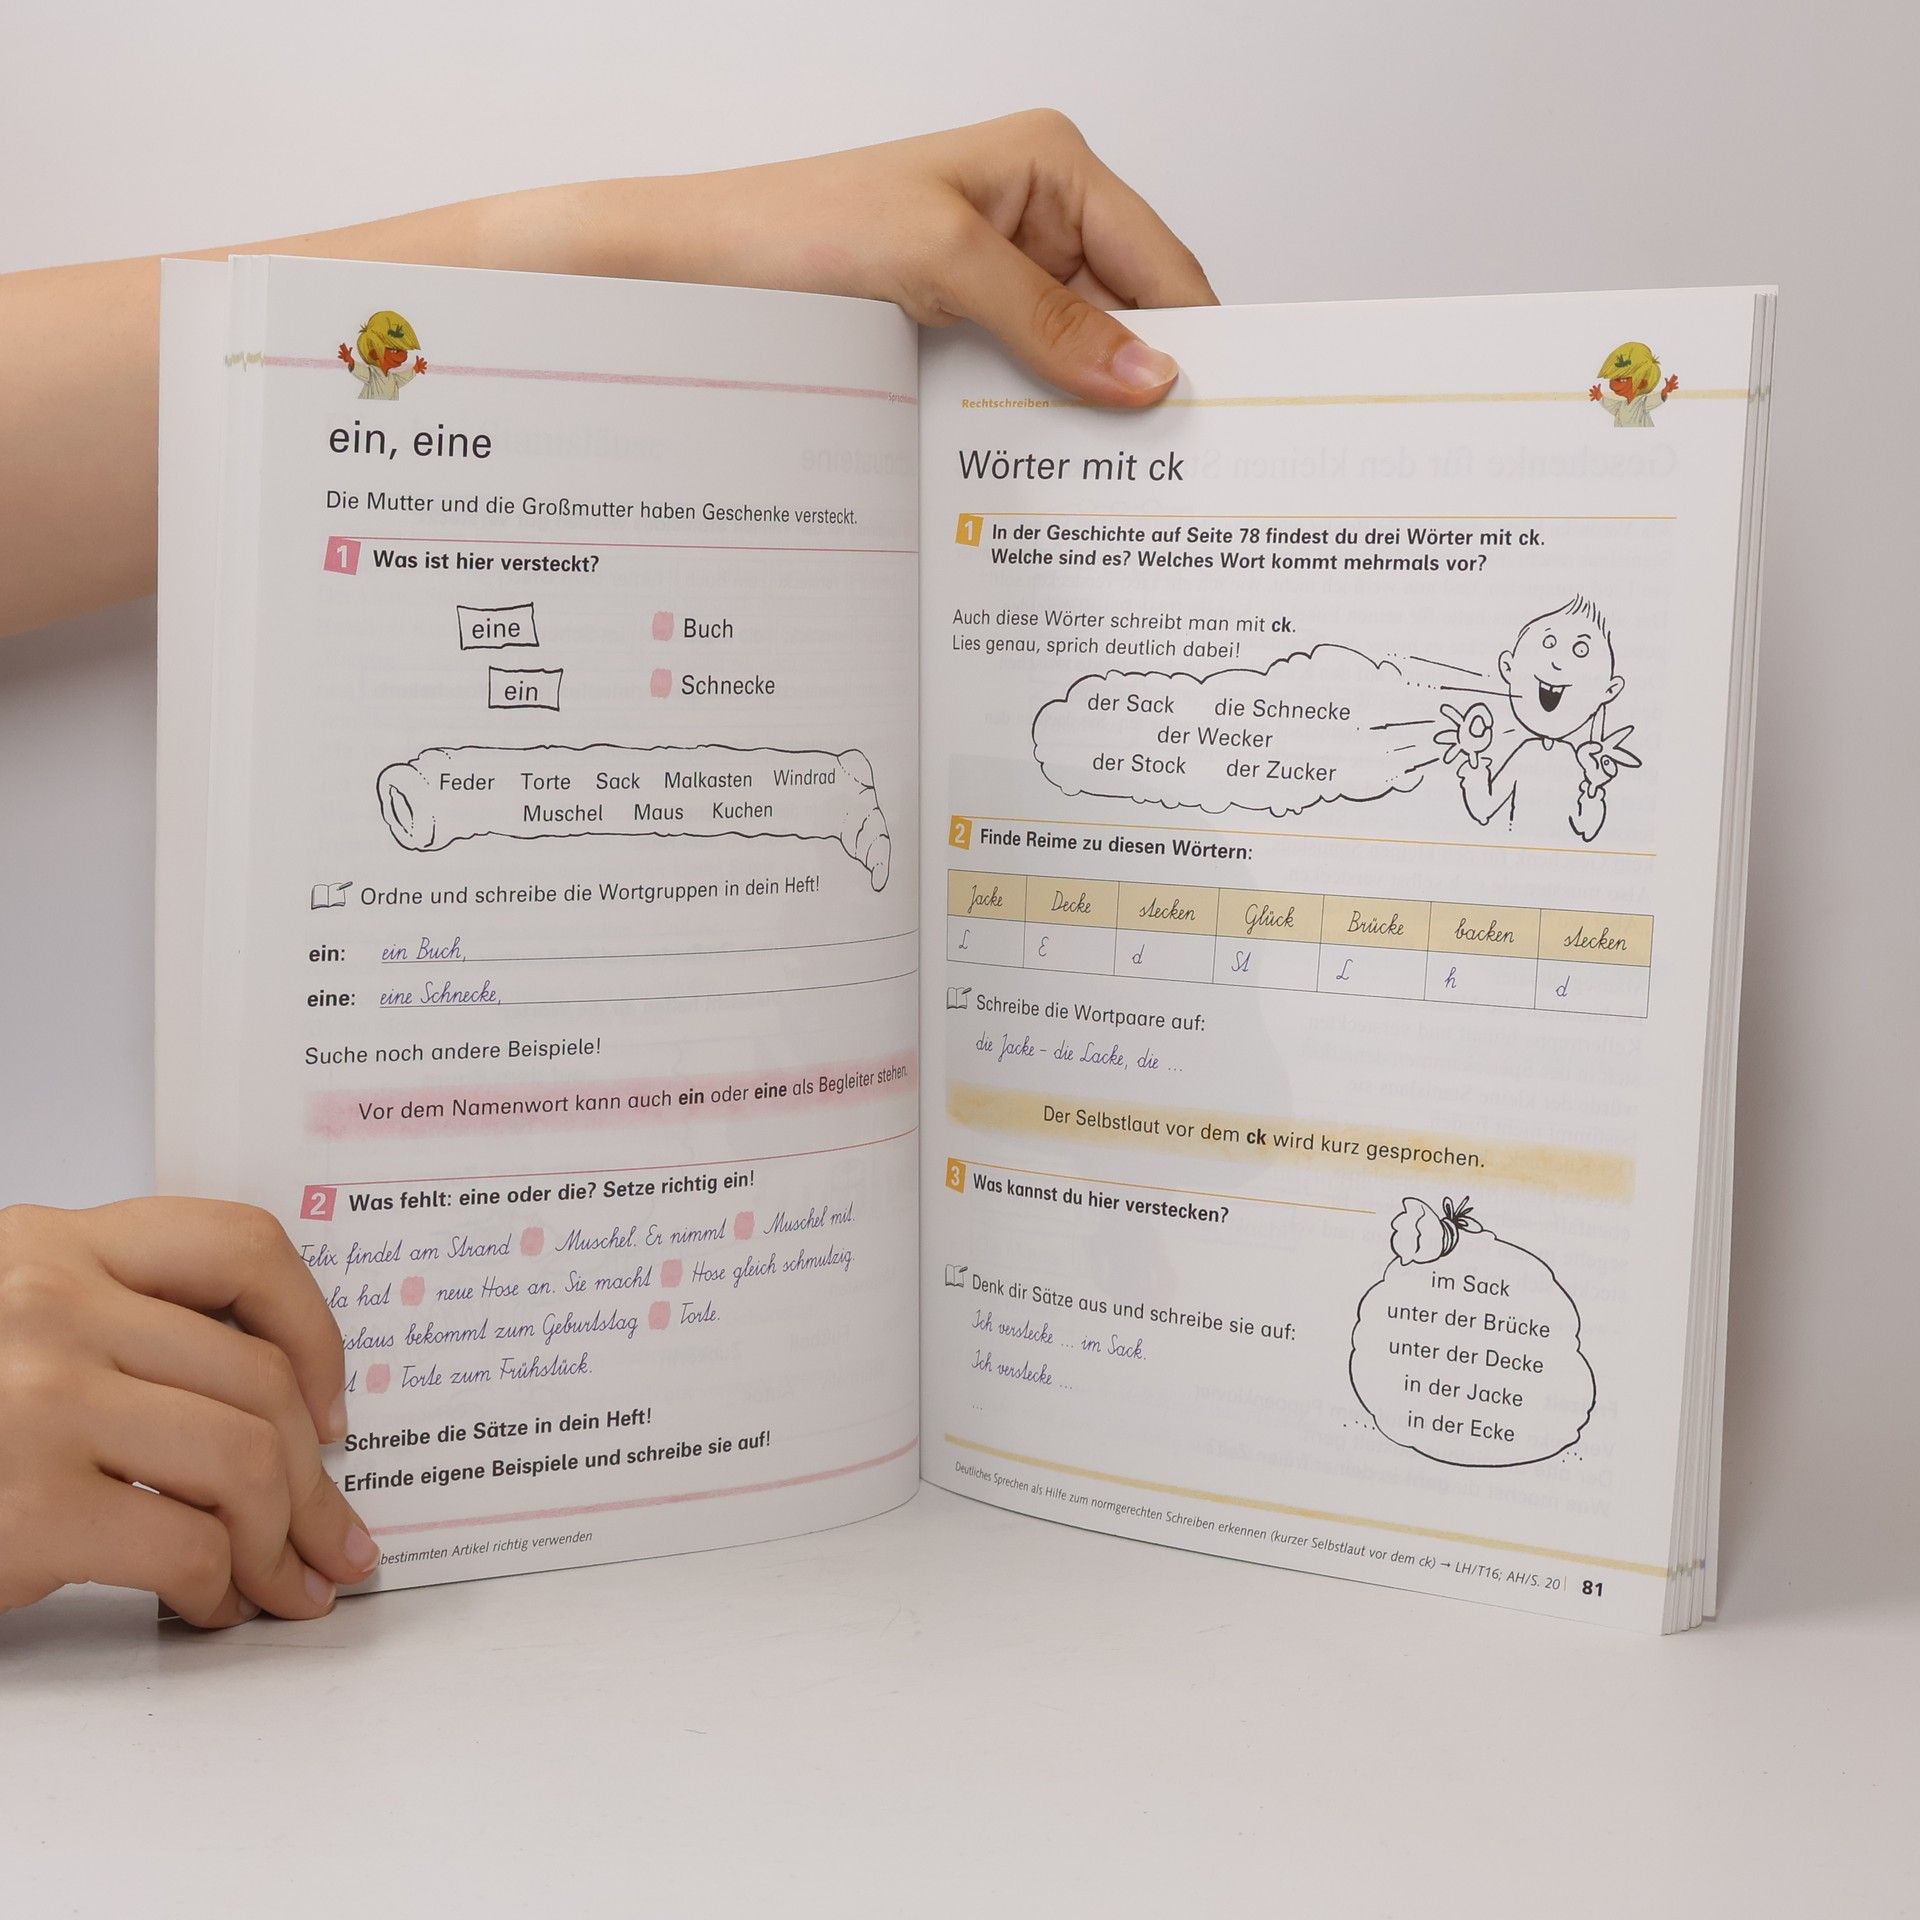 ein, eine
Die Mutter und die Großmutter haben Geschenke versteckt.
1 Was ist hier versteckt?
eine Buch
ein Schnecke
Feder Torte Sack Malkasten Windrad
Muschel Maus Kuchen
Ordne und schreibe die Wortgruppen in dein Heft!
ein: ein Buch,
eine: eine Schnecke,
Suche noch andere Beispiele!
Vor dem Namenwort kann auch ein oder eine als Begleiter stehen.
2 Was fehlt: eine oder die? Setze richtig ein!
Felix findet am Strand Muschel. Er nimmt Muschel mit.
hat neue Hose an. Sie macht Hose gleich schmutzig.
bekommt zum Geburtstag Torte.
Torte zum Frühstück.
Schreibe die Sätze in dein Heft!
Erfinde eigene Beispiele und schreibe sie auf!
bestimmten Artikel richtig verwenden
Rechtschreiben
Wörter mit ck
1 In der Geschichte auf Seite 78 findest du drei Wörter mit ck.
Welche sind es? Welches Wort kommt mehrmals vor?
Auch diese Wörter schreibt man mit ck.
Lies genau, sprich deutlich dabei!
der Sack die Schnecke
der Wecker
der Stock der Zucker
2 Finde Reime zu diesen Wörtern:
Jacke Decke stecken Glück Brücke backen stecken
L E d St L h d
Schreibe die Wortpaare auf:
die Jacke – die Lacke, die ...
Der Selbstlaut vor dem ck wird kurz gesprochen.
3 Was kannst du hier verstecken?
Denk dir Sätze aus und schreibe sie auf:
Ich verstecke ... im Sack.
Ich verstecke ...
...
im Sack
unter der Brücke
unter der Decke
in der Jacke
in der Ecke
Deutliches Sprechen als Hilfe zum normgerechten Schreiben erkennen (kurzer Selbstlaut vor dem ck) → LH/T16; AH/S. 20 81